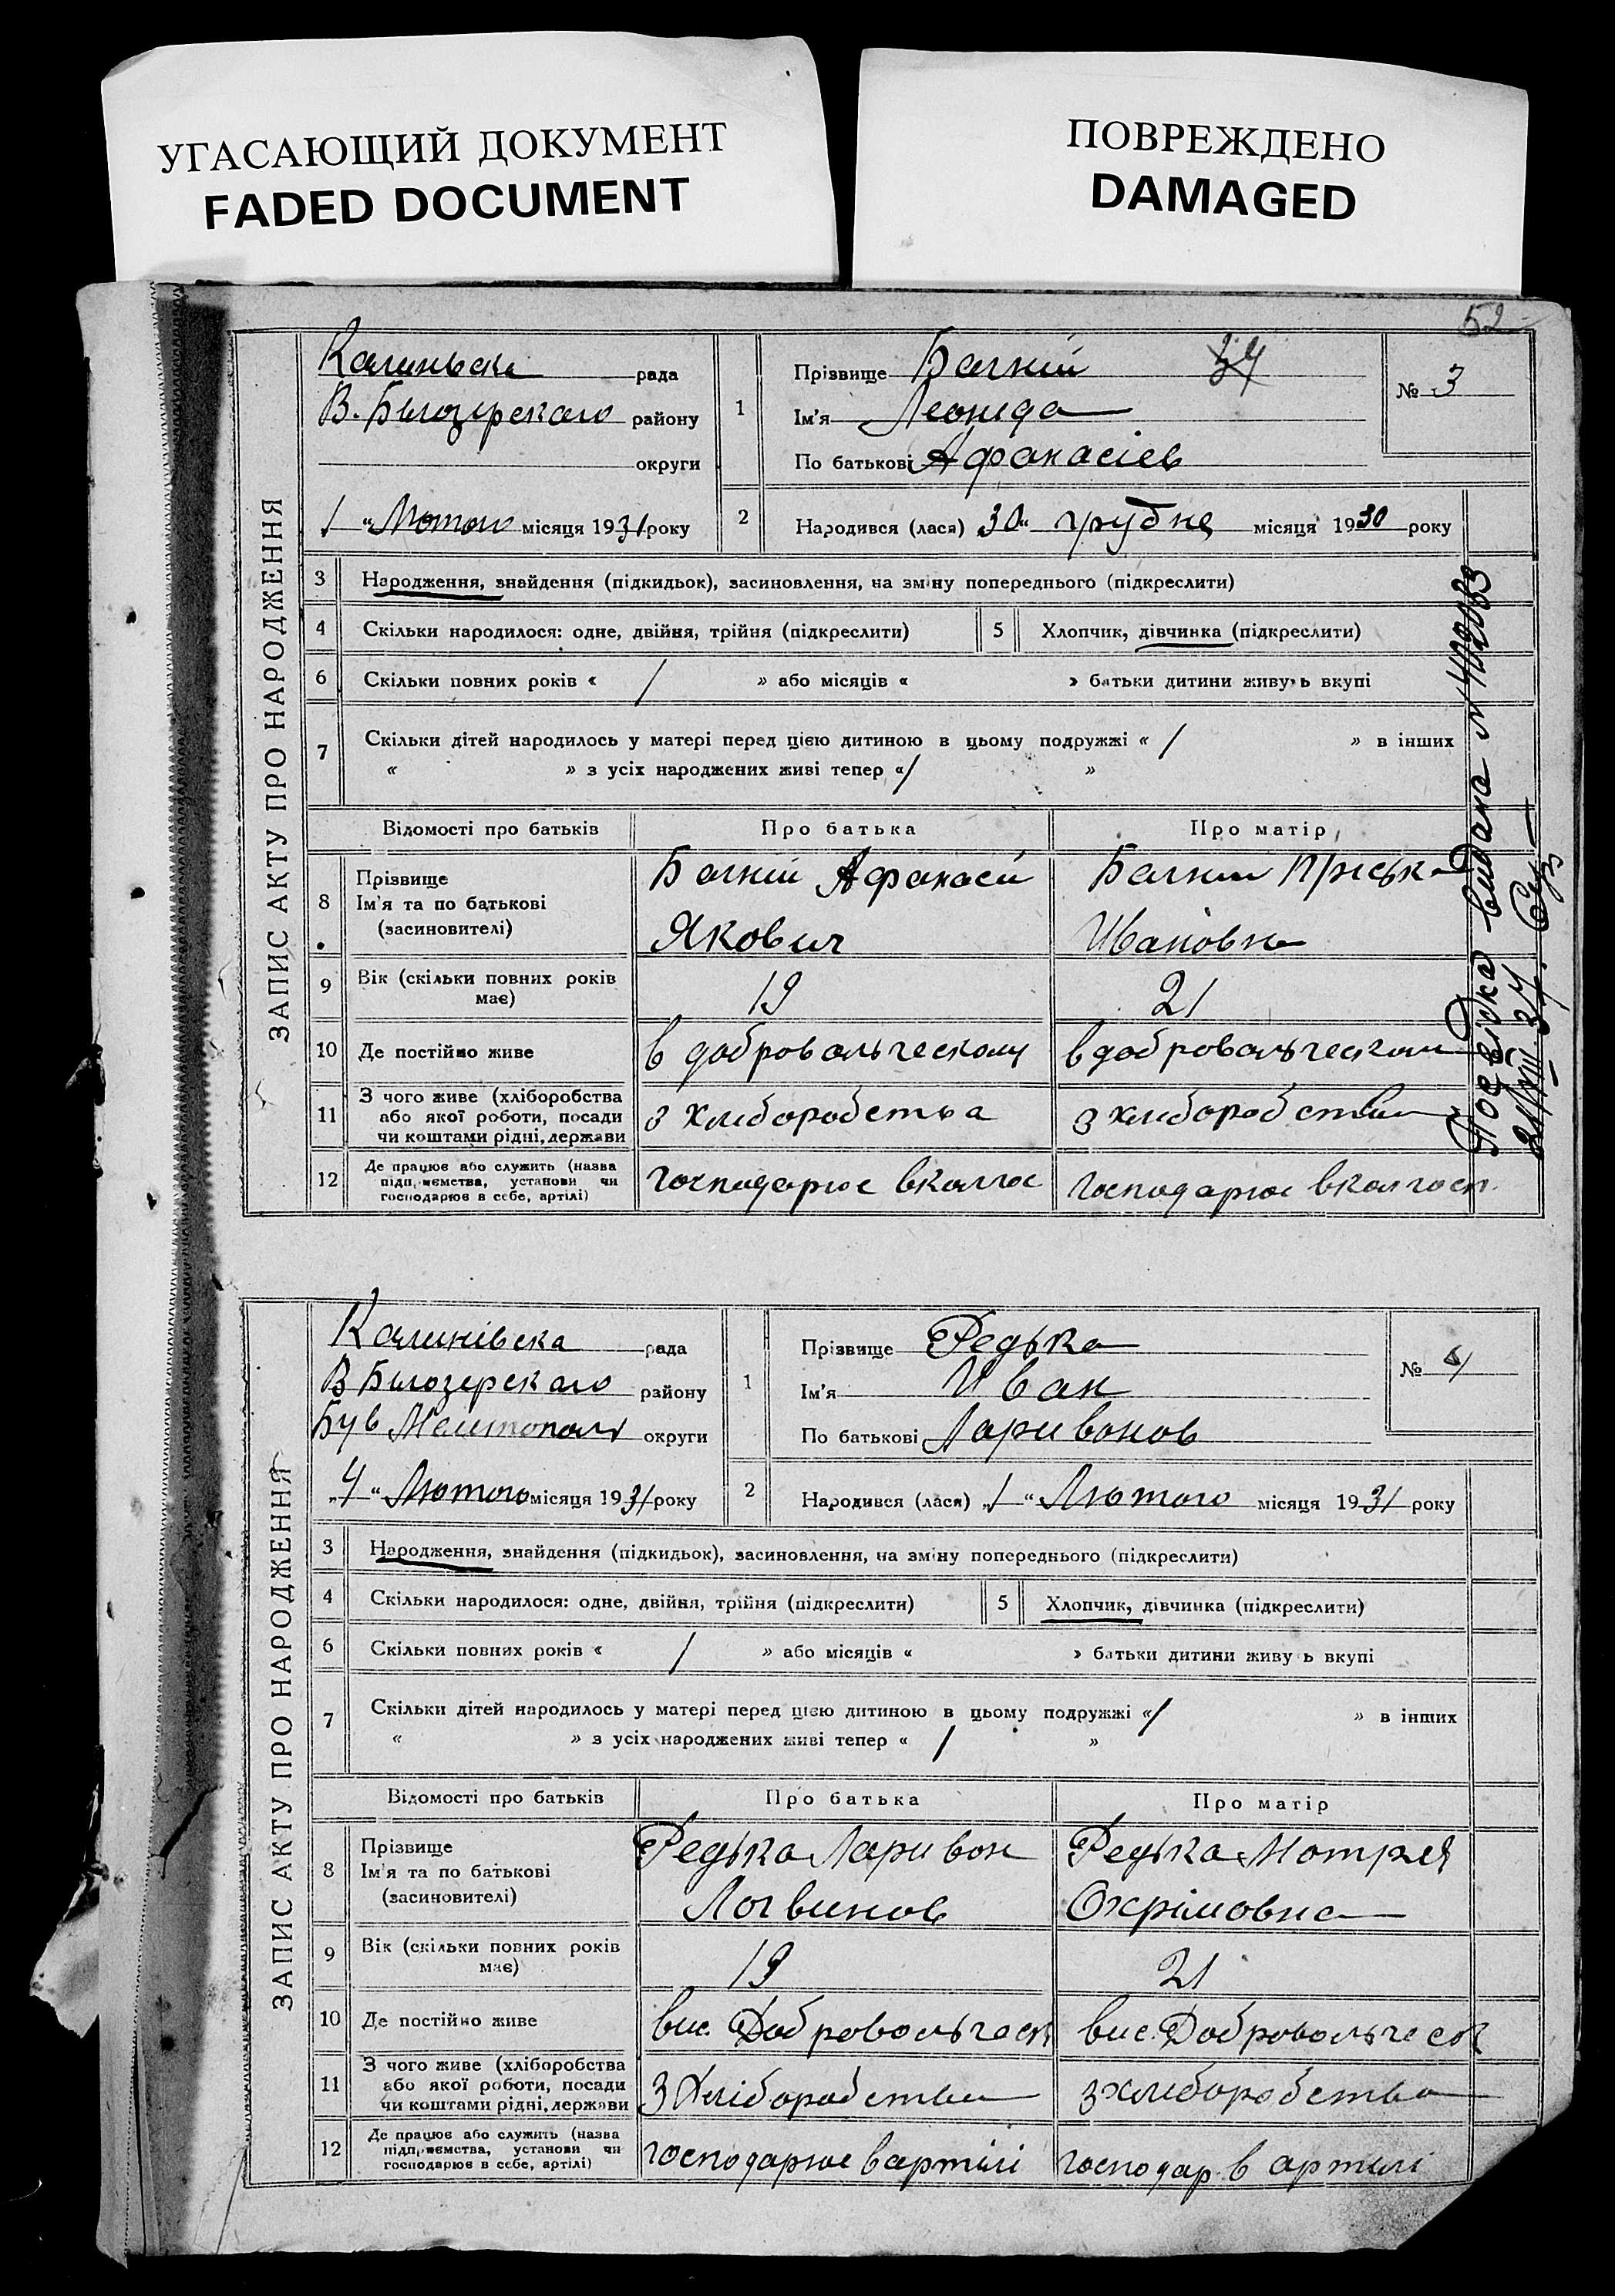 УГАСАЮЩИЙ ДОКУМЕНТ
FADED DOCUMENT
ПОВРЕЖДЕНО
DAMAGED
52
ЗАПИС АКТУ ПРО НАРОДЖЕННЯ
рада
В. Білозерского району
округи
1 " Лютого місяця 1931 року
1
Прізвище Багній 34
Ім'я Леонида
По батькові Афанасіев
№ 3
2 Народився (лася) 30 " грудня місяця 1930 року
3 Народження, знайдення (підкидьок), засиновлення, на зміну попереднього (підкреслити)
4 Скільки народилося: одне, двійня, трійня (підкреслити) 5 Хлопчик, дівчинка (підкреслити)
6 Скільки повних років « / » або місяців « » батьки дитини живуть вкупі
7 Скільки дітей народилось у матері перед цією дитиною в цьому подружжі « / » в інших
« » з усіх народжених живі тепер « / »
Відомості про батьків Про батька Про матір
8 Прізвище Ім'я та по батькові (засновителі) Багній Афанасій Багній Пріська
Якович Ивановна
9 Вік (скільки повних років має) 19 21
10 Де постійно живе в добровольческому в добровольческом
11 З чого живе (хліборобства або якої роботи, посади чи коштами рідні, держави з хлиборобства з хлиборобства
12 Де працює або служить (назва підприємства, установи чи господарює в себе, артілі) господарює в колгос господарює в колгосп.
Посвідка видана № 402063
21/VIII 37.
ЗАПИС АКТУ ПРО НАРОДЖЕННЯ
Калинівска рада
В Білозерского району
Був Мелитополь округи
„4 " Лютого місяця 1931 року
1
Прізвище Редька
Ім'я Иван
По батькові Ларивонов
№ 4
2 Народився (лася) „1 " Лютого місяця 1931 року
3 Народження, знайдення (підкидьок), засиновлення, на зміну попереднього (підкреслити)
4 Скільки народилося: одне, двійня, трійня (підкреслити) 5 Хлопчик, дівчинка (підкреслити)
6 Скільки повних років « / » або місяців « » батьки дитини живу ь вкупі
7 Скільки дітей народилось у матері перед цією дитиною в цьому подружжі « / » в інших
« » з усіх народжених живі тепер « / »
Відомості про батьків Про батька Про матір
8 Прізвище Ім'я та по батькові (засиновителі) Редька Ларивон Редька Мотря
Логвинов Охрімовна
9 Вік (скільки повних років має) 19 21
10 Де постійно живе вис. Добровольческ вис. Добровольческ
11 З чого живе (хліборобства або якої роботи, посади чи коштами рідні, держави З Хліборобства з хлиборобства
12 Де працює або служить (назва підприємства, установи чи господарює в себе, артілі) господарює в артілі господар. в артилі